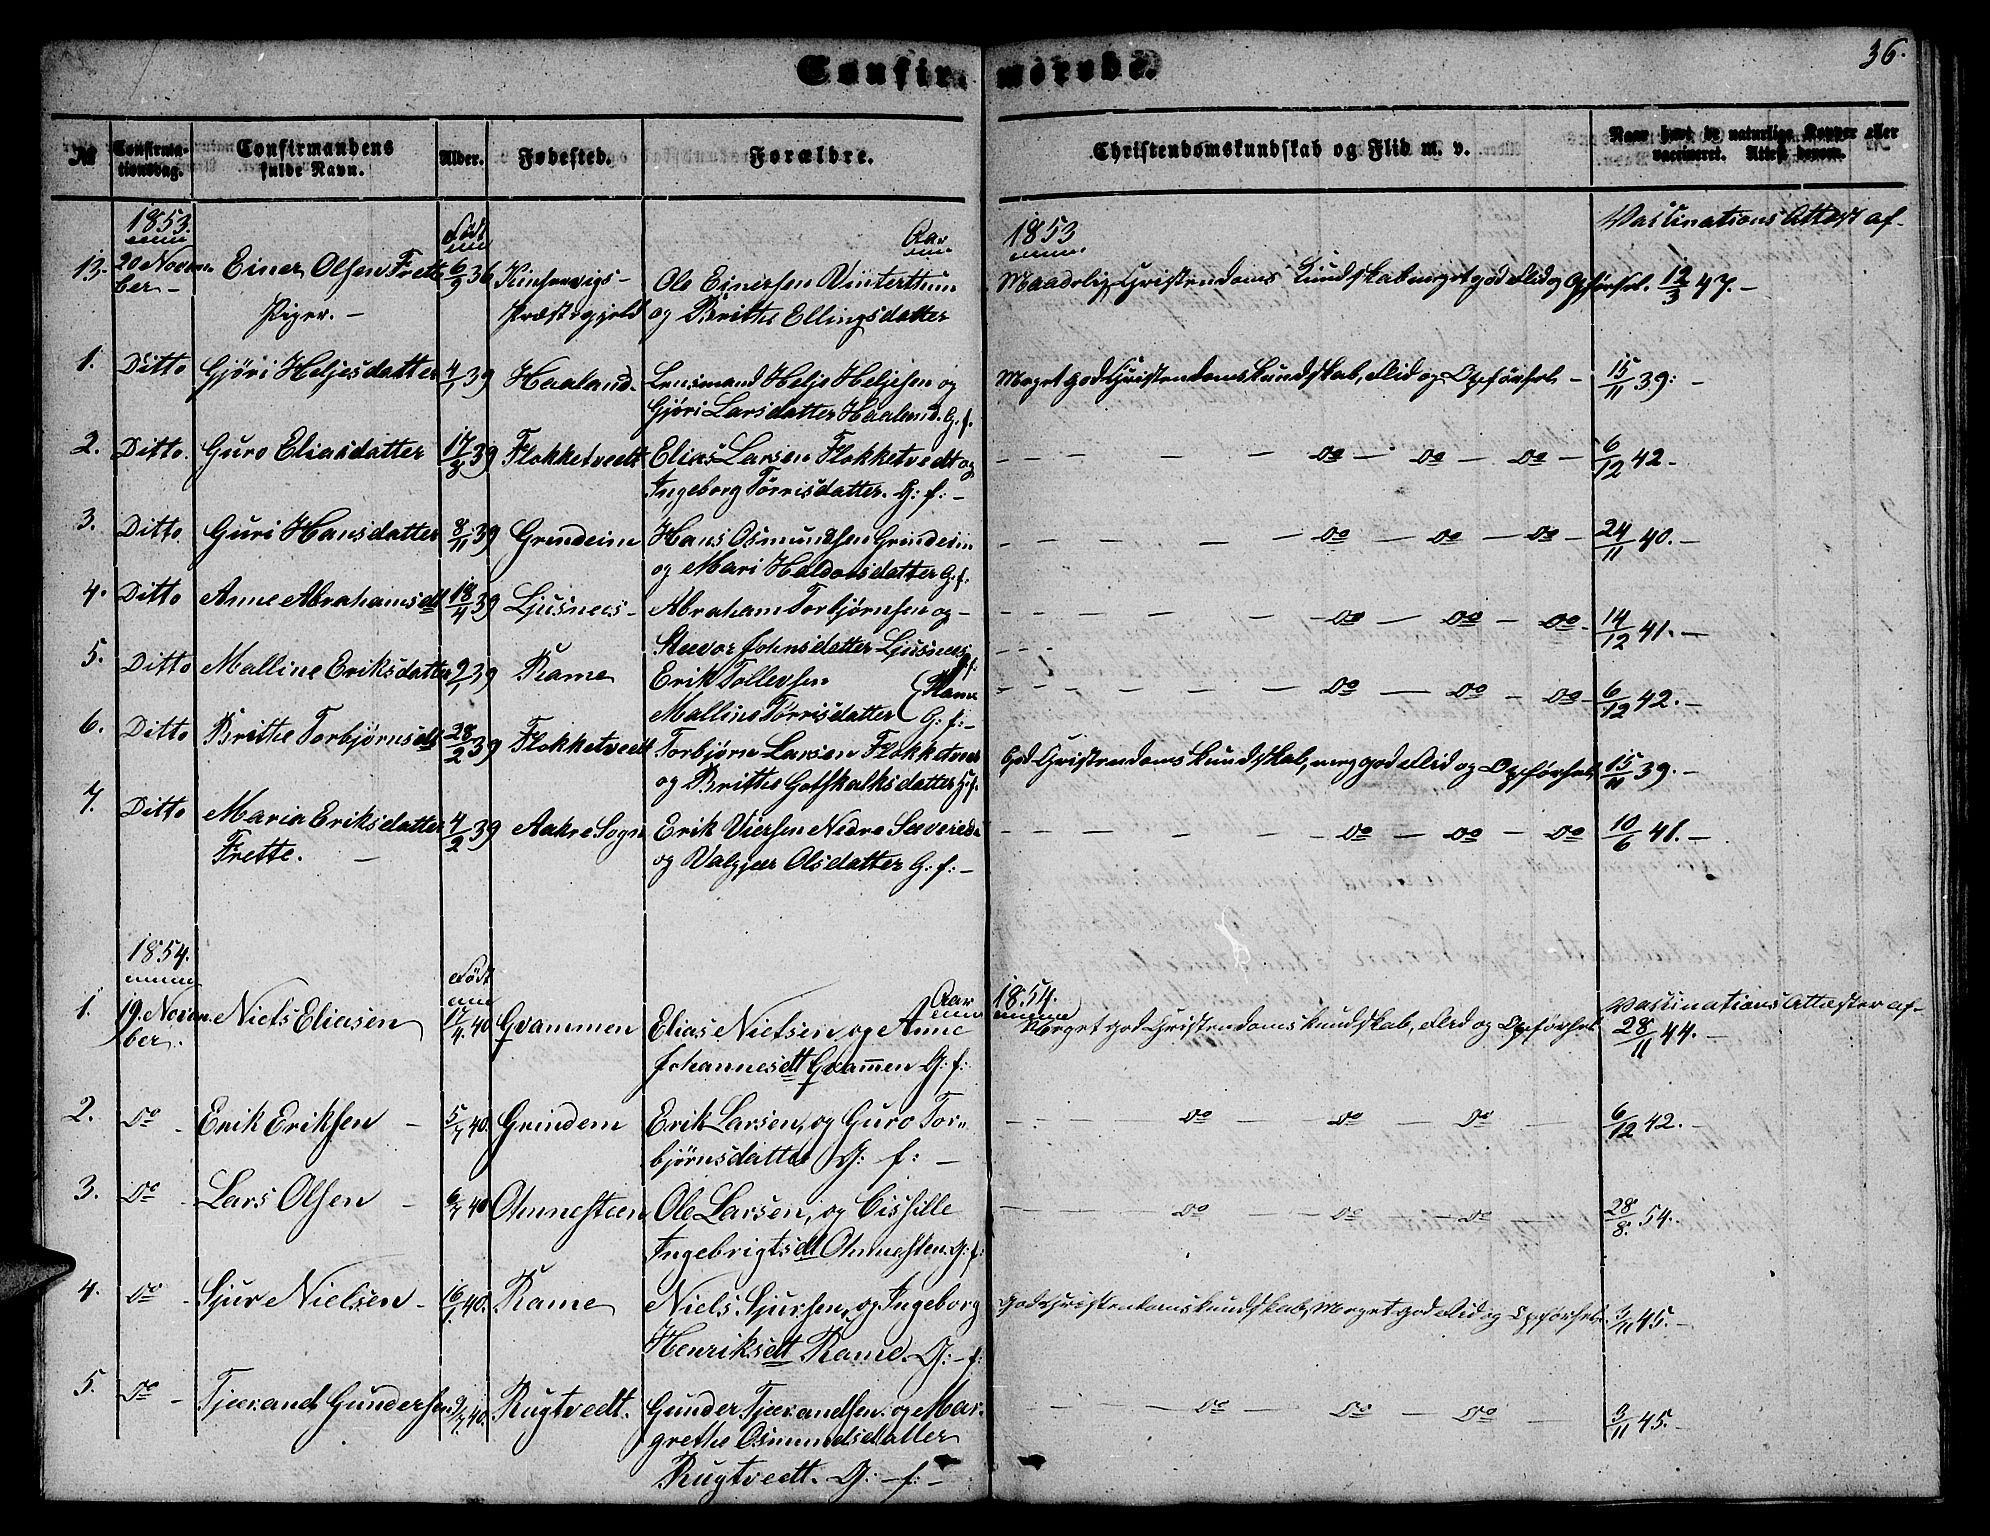 Confirmerede.
36.
№ Confirmationsdag. Confirmandens fulde Navn. Alder. Fødested. Forældre. Christendomskundskab og Flid m. v. Naar havt de naturlige Kopper eller vaccineret. Attest derom.
1853. Født Aar 1853 Vaccinations Attest af
13. 20 Novem- Einer Olsen Frette 6/3 36 Kinservigs- Ole Einersen Vinterthun Maadelig Christendoms Kundskab meget god Flid og Opførsel. 12/3 47. -
ber - Præstegjeld og Brithe Ellingsdatter
Piger. -
1. Ditto Gjøri Heljesdatter 4/1 39 Haaland. Lensmand Helje Heljesen og Meget god Christendomskundskab, Flid og Opførsel - 15/11 39: -
Gjøri Larsdatter Haaland. G. f.
2. Ditto. Guro Eliasdatter 17/8 39 Flokketvedt Elias Larsen Flokketvedt og - - - - - do - do - do - 6/12 42. -
Ingeborg Tørrisdatter. G: f: -
3. Ditto Guri Hansdatter 8/11 39 Grindeim Hans Osmundsen Grindeim - - - - - do - do - do - 24/11 40. -
og Mari Haldorsdatter G. f.
4. Ditto Anne Abrahamsdt 18/4 39 Ljusnees - Abraham Torbjørnsen og - - - - - - do - do - do - 14/12 41. -
Johnsdatter Ljusnees
G: f:
5. Ditto Malline Eriksdatter 2/1 39 Rame Erik Tollevsen (Rame - - - - - do - do - do - 6/12 42. -
Malline Tørrisdatter G: f: -
6. Ditto Brithe Torbjørnsdt 28/2 39 Flokketvedt Torbjørn Larsen Flokketved God Christendomskundskab, meg god Flid og Opførsel 15/11 39. -
og Brithe Gotskalksdatter G. f.
7. Ditto Maria Eriksdatter 4/2 39 Aakre Sogn Erik Viersen Nedre - - - - - do - do - do 10/6 41. -
Frette. - og Valgjær Olsdatter G: f: -
1854. Født Aar 1854. Vaccinations Attester af
1. 19. Novem- Niels Eliasen 17/1. 40 Qvammen Elias Nielsen og Anne Meget god Christendomskundskab, Flid og Opførsel 28/11 44. -
ber. Johannesdt Qvam̄en G: f:
2. do - Erik Eriksen - 5/7 40. Grindem Erik Larsen, og Guro Tor- - - - do - do - do - 6/12 42. -
bjørnsdatter G: f: -
3. do - Lars Olsen - 6/7 40 Omnesteen Ole Larsen, og Cissille - - - do - do - do - 28/8. 54. -
Ingebrigtsdt Omnesten. G: f:
4. do - Sjur Nielsen - 16/1. 40. Rame Niels Sjursen, og Ingeborg God Christendomskundskab, Meget god Flid og Opførsel. 3/11 45. -
Henriksdt Rame. G: - f:
5. do - Tjærand Gundersen 9/7. 40. Rugtvedt. Gunder Tjærandsen og Mar- - - - do - do - do - 3/11 45. -
grethe Osmundsdatter
Rugtvedt. G: - f: -